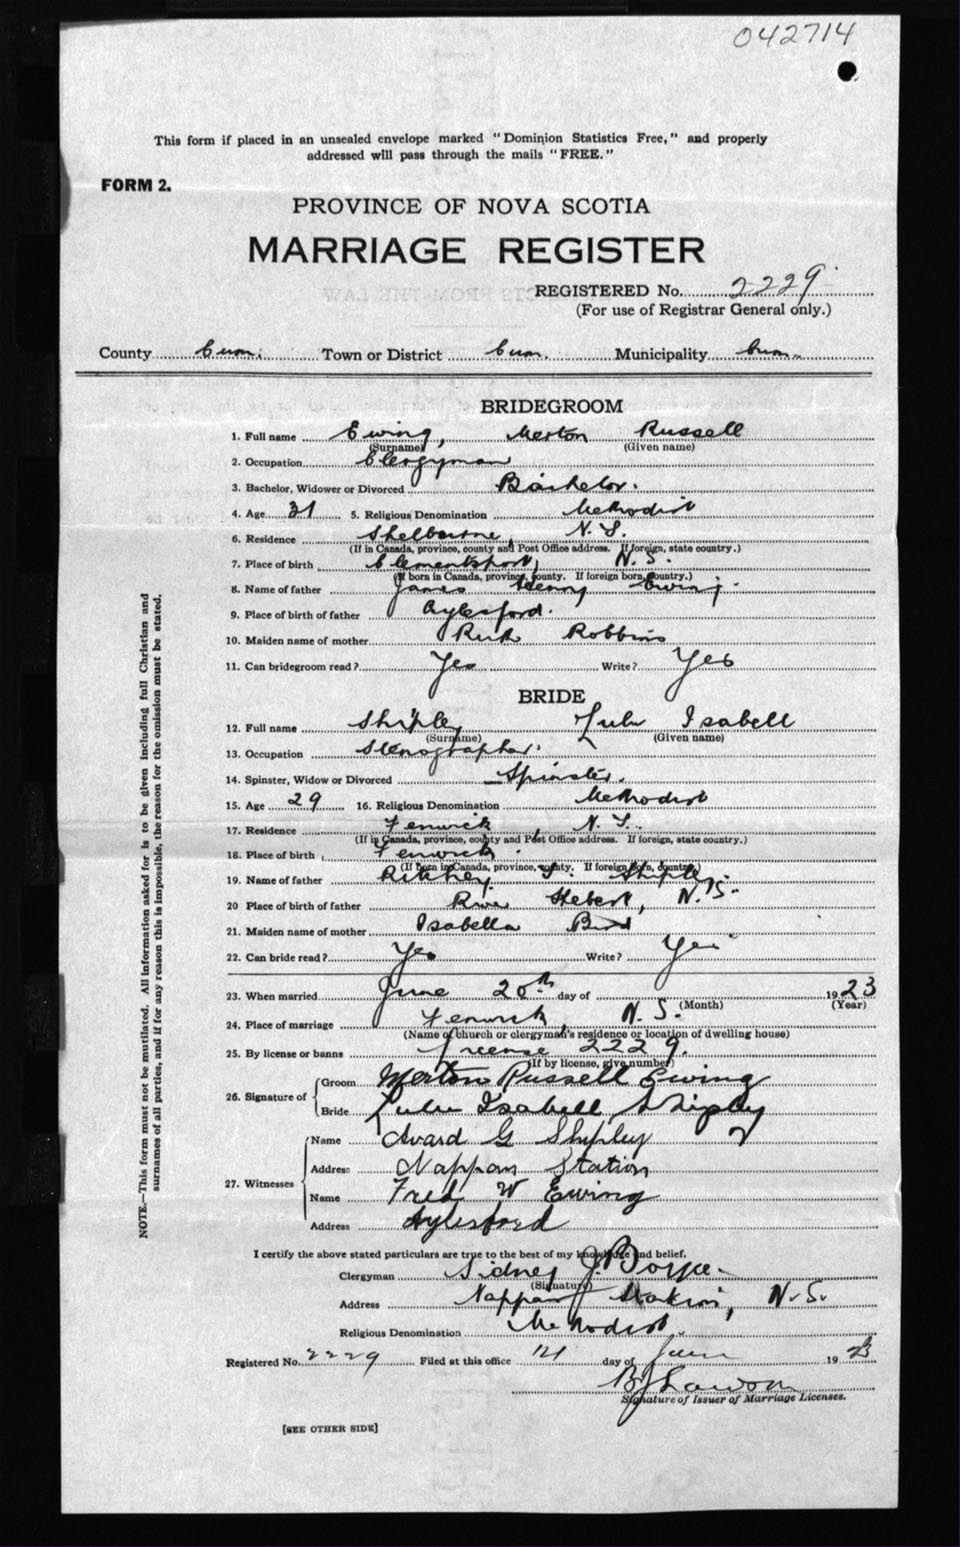 042714
This form if placed in an unsealed envelope marked "Dominion Statistics Free," and properly
addressed will pass through the mails "FREE."
FORM 2.
PROVINCE OF NOVA SCOTIA
MARRIAGE REGISTER
REGISTERED No. 2229
(For use of Registrar General only.)
County Cum. Town or District Cum. Municipality Cum.
BRIDEGROOM
1. Full name Ewing, Merton Russell
(Surname) (Given name)
2. Occupation Clergyman
3. Bachelor, Widower or Divorced Bachelor.
4. Age 31 5. Religious Denomination Methodist
6. Residence Shelburne, N.S.
(If in Canada, province, county and Post Office address. If foreign, state country.)
7. Place of birth Clementsport, N.S.
(If born in Canada, province, county. If foreign born, country.)
8. Name of father James Henry Ewing
9. Place of birth of father Aylesford.
10. Maiden name of mother Ruth Robbins
11. Can bridegroom read? Yes Write? Yes
BRIDE
12. Full name Shipley Lulu Isabell
(Surname) (Given name)
13. Occupation Stenographer.
14. Spinster, Widow or Divorced Spinster.
15. Age 29 16. Religious Denomination Methodist
17. Residence Fenwick, N.S.
(If in Canada, province, county and Post Office address. If foreign, state country.)
18. Place of birth Fenwick.
(If born in Canada, province, county. If foreign born, country.)
19. Name of father Ritchey Shipley
20 Place of birth of father River Hebert, N.S.
21. Maiden name of mother Isabella
22. Can bride read? Yes Write? Yes
23. When married June 20th day of 1923
(Month) (Year)
24. Place of marriage Fenwick, N.S.
(Name of church or clergyman's residence or location of dwelling house)
25. By license or banns License 2229.
(If by license, give number)
26. Signature of Groom Merton Russell Ewing
Bride Lulu Isabell Shipley
27. Witnesses Name Avard G Shipley
Address Nappan Station
Name Fred W Ewing
Address Aylesford
I certify the above stated particulars are true to the best of my knowledge and belief.
Clergyman Sidney J. Boyce.
(Signature)
Address Nappan Station, N.S.
Religious Denomination Methodist
Registered No. 2229 Filed at this office 121 day of June 1923
Signature of Issuer of Marriage Licenses.
[SEE OTHER SIDE]
NOTE.—This form must not be mutilated. All information asked for is to be given including full Christian and
surnames of all parties, and if for any reason this is impossible, the reason for the omission must be stated.